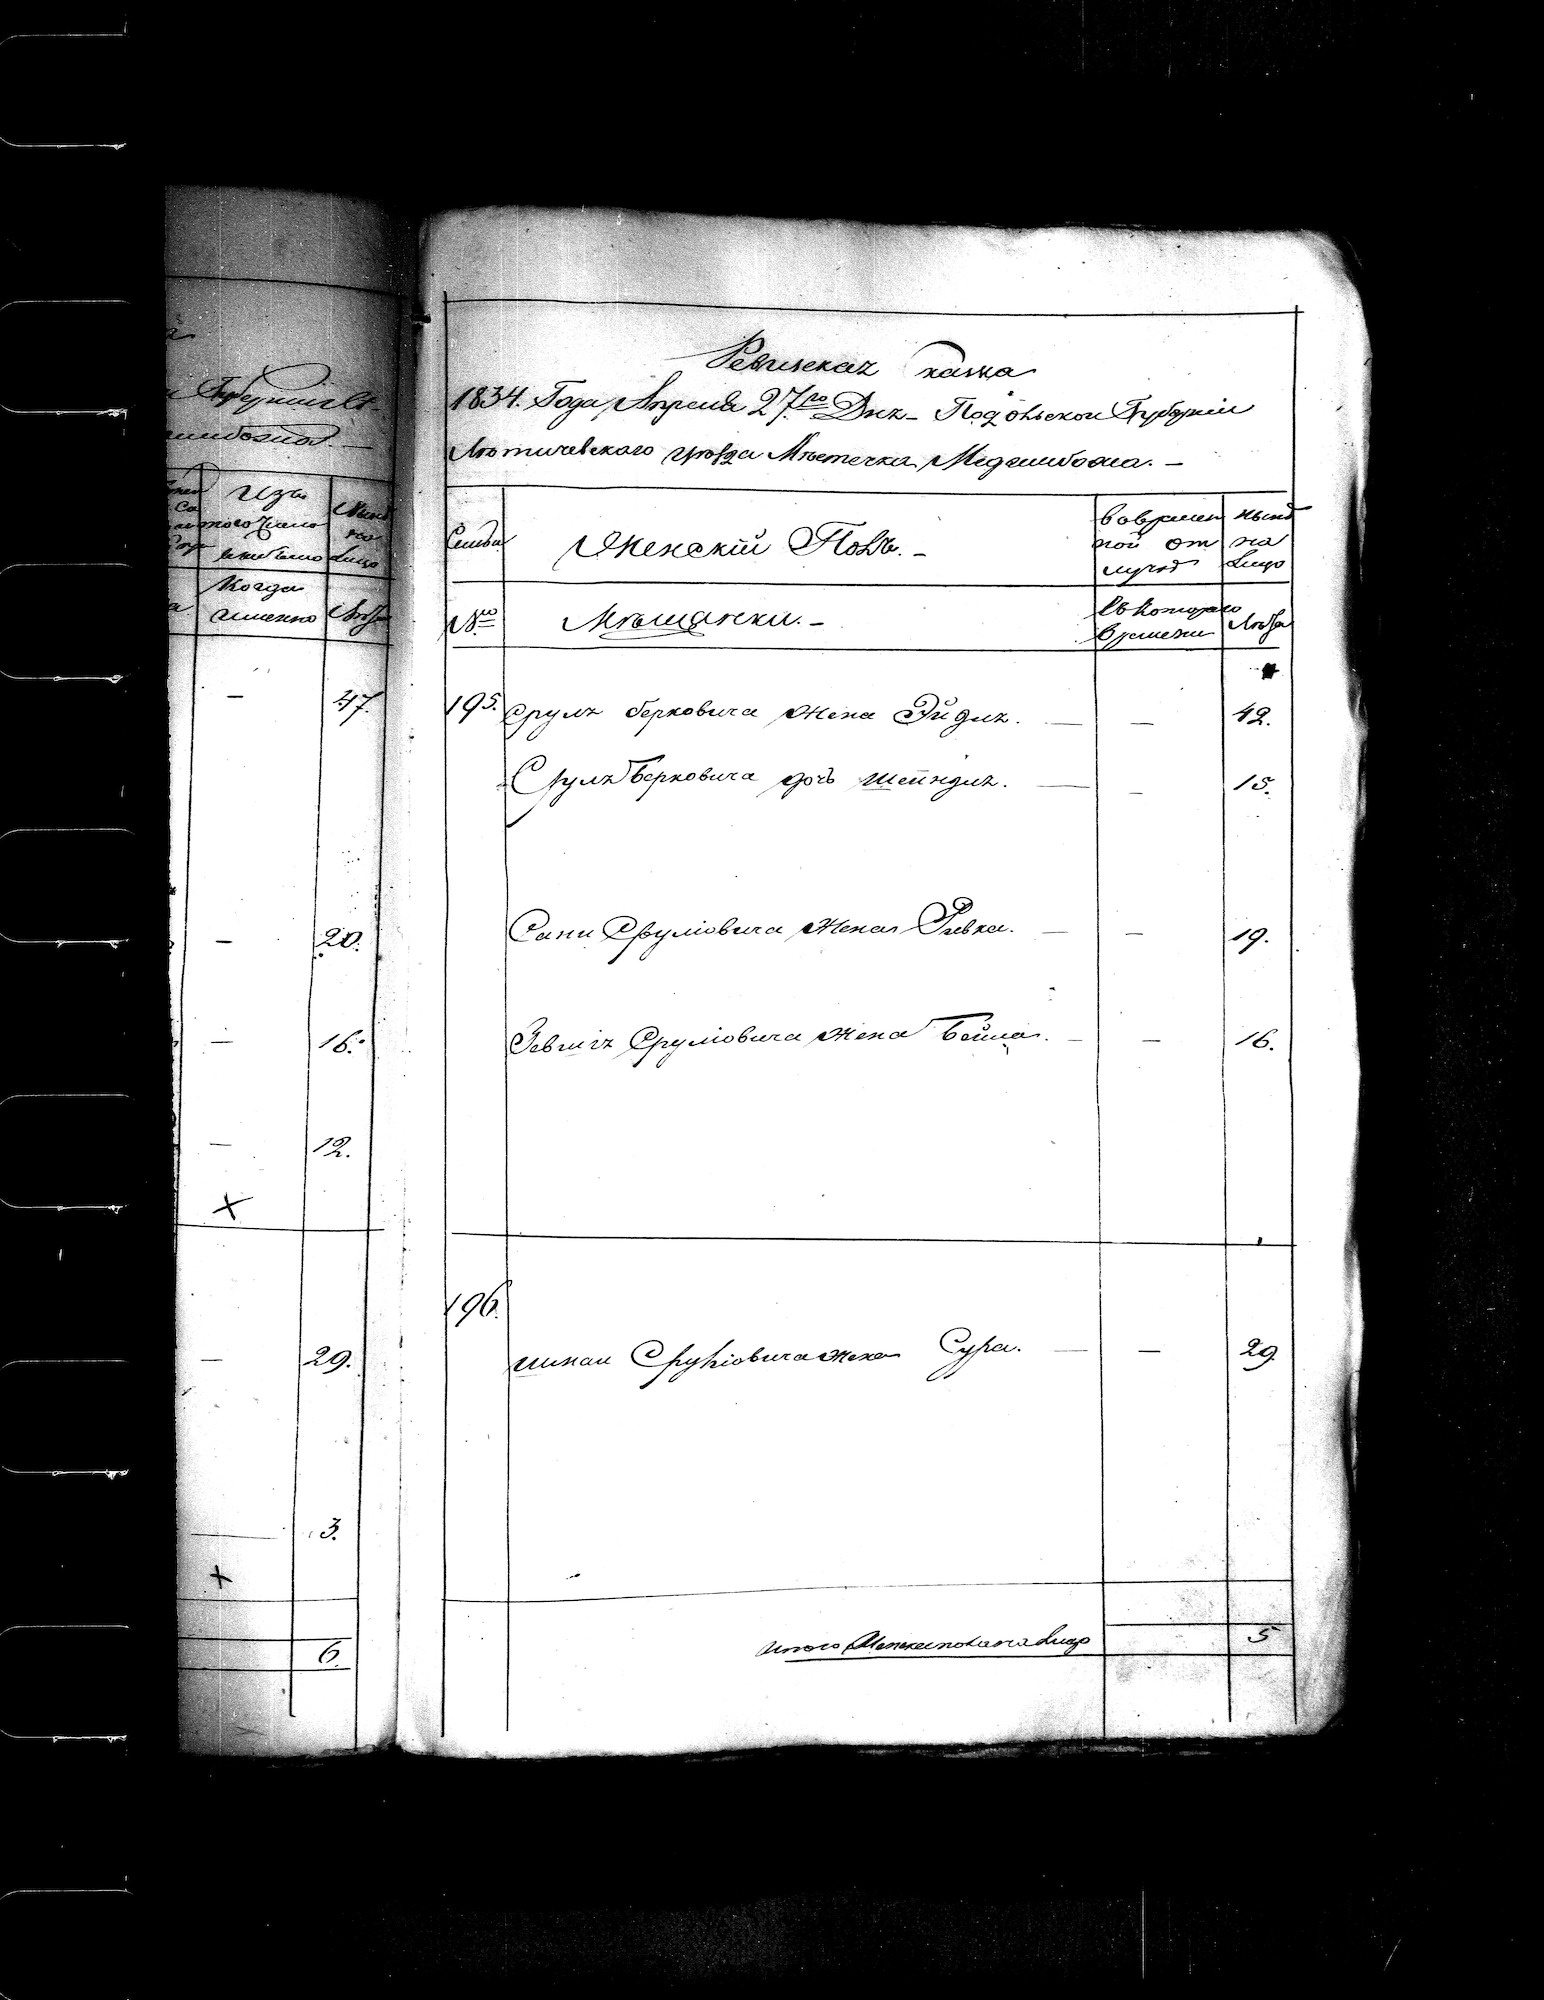 Губерніи Ле-
Изъ
того числа
Ныне
на
лицо
Когда
именно
Лѣта
-
47.
-
20.
-
16.
-
12.
-
29.
3.
6.
Ревизская сказка
1834. Года Апреля 27.го Дня - Подольской Губерніи
Лѣтичевского уѣзда Мѣстечка Меджибожа. -
Семья
Женскій Полъ. -
Во времен
ной от
лучкѣ
нынѣ
на
лицо
№
Мѣщанки. -
Съ которого
времени
Лѣта
195. Сруля Берковича жена Эйдля. - - 42.
Сруля Берковича дочь Шейндля. - - 15.
Сани Сруліовича жена Ривка. - - 19.
Зевеля Сруліовича жена Бейла. - - 16.
196.
Сруліовича жена Сура. - - 29
Итого Женского пола на лицо 5